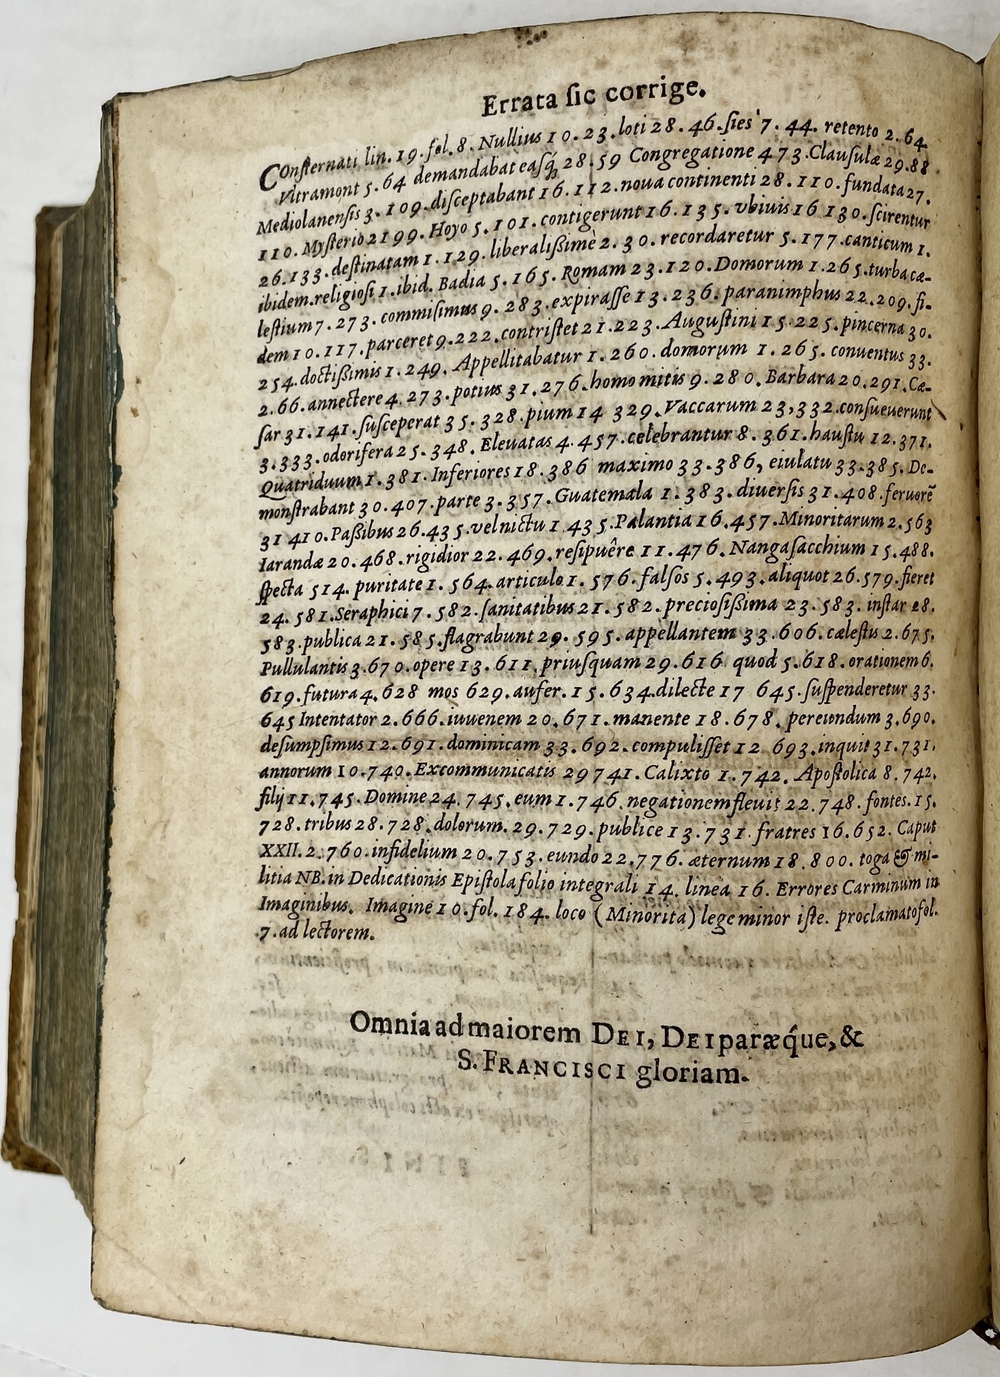 Errata ſic corrige.
COnſternati lin. 19. fol. 8. Nullius 10. 23. loti 28. 46. ſies 7. 44. retento 2. 64.
Vltramont 5. 64 demandabat eaſq́; 28. 59 Congregatione 473. Clauſulæ 29. 88
Mediolanenſis 3. 109. diſceptabant 16. 112. noua continenti 28. 110. fundata 27.
110. Myſterio 2 199. Hoyo 5. 101. contigerunt 16. 135. vbiuis 16 130. ſcirentur
26. 133. deſtinatam 1. 129. liberalißimè 2. 30. recordaretur 5. 177. canticum 1.
ibidem. religioſi 1. ibid. Badia 5. 165. Romam 23. 120. Domorum 1. 265. turba cæ-
leſtium 7. 273. commiſimus 9. 283. expiraſſe 13. 236. paranimphus 22. 209. fi-
dem 10. 117. parceret 9. 222. contriſtet 21. 223. Auguſtini 15. 225. pincerna 30.
254. doctißimis 1. 249. Appellitabatur 1. 260. domorum 1. 265. conuentus 33.
2. 66. annectere 4. 273. potius 31. 276. homo mitis 9. 280. Barbara 20. 291. Cæ-
ſar 31. 141. ſuſceperat 35. 328. pium 14 329. Vaccarum 23, 332. conſueuerunt
3. 333. odorifera 25. 348. Eleuatas 4. 457. celebrantur 8. 361. hauſtu 12. 371.
Quatriduum 1. 381. Inferiores 18. 386 maximo 33. 386, eiulatu 33. 385. De-
monſtrabant 30. 407. parte 3. 357. Guatemala 1. 383. diuerſis 31. 408. feruorē
31 410. Paßibus 26. 435. vel nictu 1. 435. Palantia 16. 457. Minoritarum 2. 563
Iarandæ 20. 468. rigidior 22. 469. reſipuêre 11. 476. Nangaſacchium 15. 488.
ſpecta 514. puritate 1. 564. articulo 1. 576. falſos 5. 493. aliquot 26. 579. fieret
24. 581. Seraphici 7. 582. ſanitatibus 21. 582. precioſißima 23. 583. inſtar 28.
583. publica 21. 585. flagrabunt 29. 595. appellantem 33. 606. cæleſtis 2. 675.
Pullulantis 3. 670. opere 13. 611. priuſquam 29. 616 quod 5. 618. orationem 6.
619. futura 4. 628 mos 629. aufer. 15. 634. dilecte 17 645. ſuſpenderetur 33.
645 Intentator 2. 666. iuuenem 20. 671. manente 18. 678. pereundum 3. 690.
deſumpſimus 12. 691. dominicam 33. 692. compuliſſet 12 693. inquit 31. 731.
annorum 10. 740. Excommunicatis 29 741. Calixto 1. 742. Apoſtolica 8. 742.
filij 11. 745. Domine 24. 745. eum 1. 746. negationem fleuit 22. 748. fontes. 15.
728. tribus 28. 728. dolorum. 29. 729. publice 13. 731. fratres 16. 652. Caput
XXII. 2. 760. infidelium 20. 753. eundo 22. 776. æternum 18. 800. toga & mi-
litia NB. in Dedicationis Epiſtola folio integrali 14. linea 16. Errores Carminum in
Imaginibus. Imagine 10. fol. 184. loco (Minorita) lege minor iſte. proclamato fol.
7. ad lectorem.
Omnia ad maiorem DEI, DEIparæq́ue, &
S. FRANCISCI gloriam.